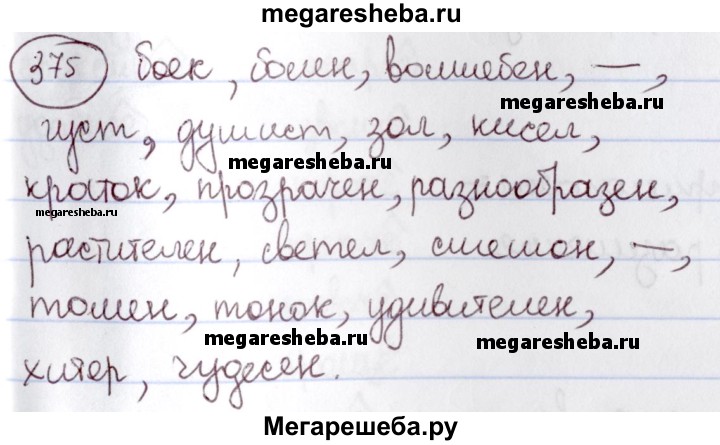 megaresheba.ru
375 боек, болен, волшебен, —,
megaresheba.ru
густ, душист, зол, кисел,
megaresheba.ru
краток, прозрачен, разнообразен,
megaresheba.ru
растителен, светел, смешон, —,
томен, тонок, удивителен,
megaresheba.ru
megaresheba.ru
хитер, чудесен.
Мегарешеба.ру